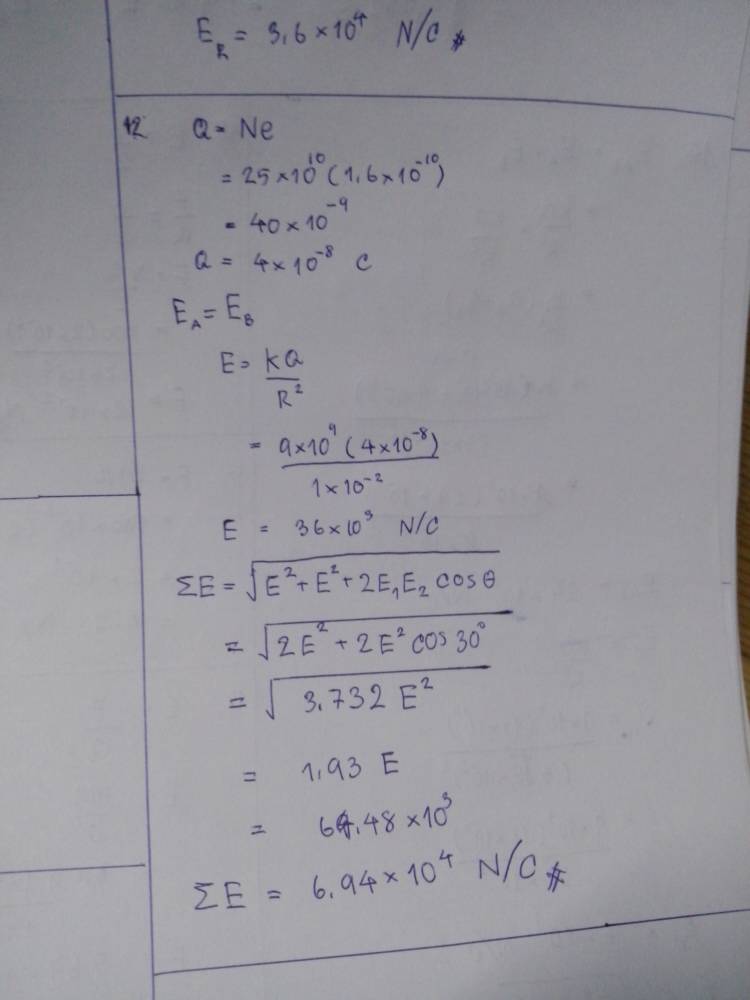 E_R = 3,6 × 10⁴ N/C #
12 Q = Ne
= 25 × 10¹⁰ (1,6 × 10⁻¹⁰)
= 40 × 10⁻⁹
Q = 4 × 10⁻⁸ C
E_A = E_B
E = kQ / R²
= 9 × 10⁹ (4 × 10⁻⁸) / 1 × 10⁻²
E = 36 × 10³ N/C
ΣE = √(E² + E² + 2E₁E₂ cos θ)
= √(2E² + 2E² cos 30°)
= √(3,732 E²)
= 1,93 E
= 69,48 × 10³
ΣE = 6,94 × 10⁴ N/C #